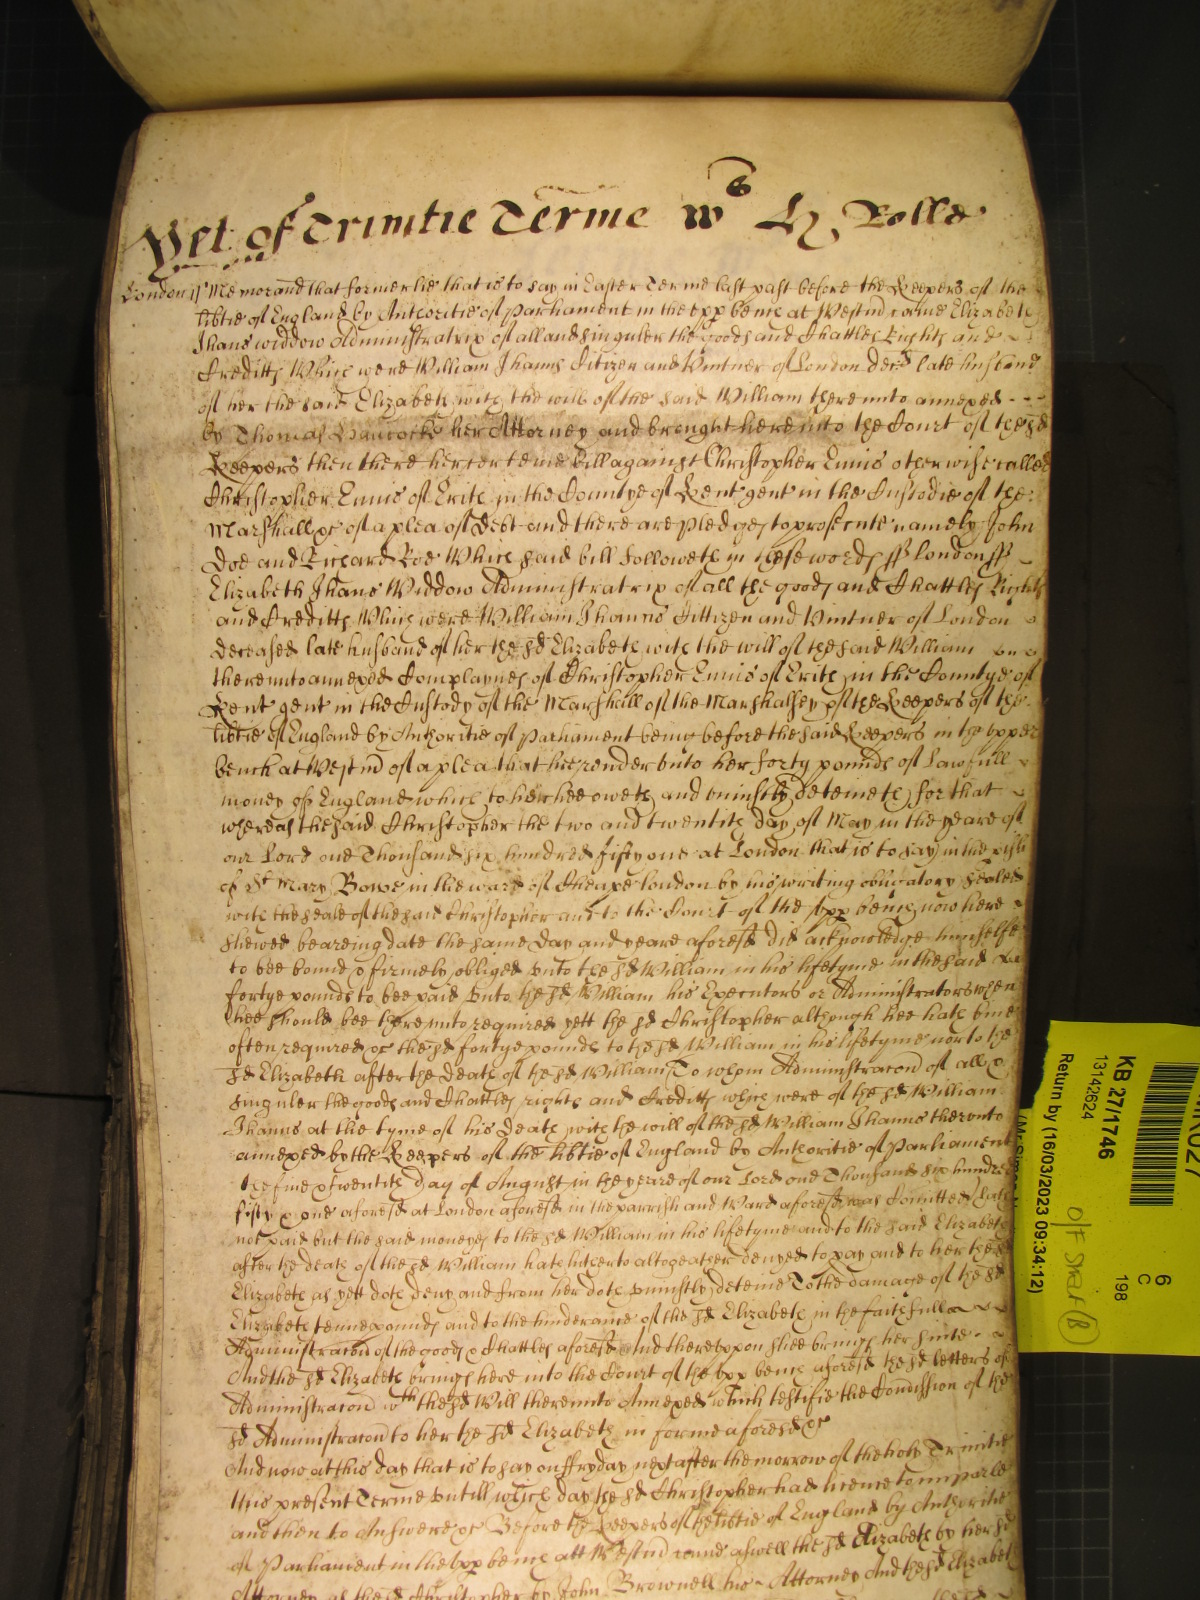 Yet of Trinitie Terme wth Hy Rolls
London ss Memorand that formerlie that is to say in Easter Terme last past before the Keepers of the
libtie of England by Authoritie of Parliament in the upp bench at Westmr came Elizabeth
Jhans widdow Administratrix of all and singuler the goods and Chattles Rights and
Creditts Which were William Jhanns Citizen and Vintner of London decd late husband
of her the said Elizabeth with the will of the said William there unto annexed
by Thomas Hancocke her Attorney and brought here into the Court of the sd
Keepers then there her certeine bill against Christopher Ennis otherwise called
Christopher Ennis of Erith in the Countye of Kent gent in the Custodie of the
Marshall &c of a plea of debt and there are pledges to prosecute namely John
Doe and Richard Roe Which said bill followeth in these words ss London ss
Elizabeth Jhans Widdow Administratrix of all the goods and Chattles Rights
and Creditts Which were William Jhanns Cittizen and Vintner of London
deceased late husband of her the sd Elizabeth with the will of the said William
thereunto annexed Complaynes of Christopher Ennis of Erith in the Countye of
Kent gent in the Custody of the Marshall of the Marshalsey of the Keepers of the
libtie of England by Authoritie of Parliament being before the said Keepers in the upper
bench at Westmr of a plea that hee render unto her forty pounds of Lawfull
money of England which to her hee oweth and uniustly deteineth for that
whereas the said Christopher the two and twentith day of May in the yeare of
our Lord one Thousand six hundred fifty one at London that is to say in the pish
of St Mary Bowe in the ward of Cheape London by his writing obligatory sealed
with the seale of the said Christopher and to the Court of the upp bench now here
shewed beareing date the same day and yeare aforesd did acknowledge himselfe
to bee bound & firmely obliged unto the sd William in his lifetyme in the said
fortye pounds to bee paid unto the sd William his Executors or Administrators when
hee should bee thereunto required yett the sd Christopher although hee hath bine
often required &c the sd fortye pounds to the sd William in his lifetyme nor to the
sd Elizabeth after the death of the sd William To whom Administracon of all &
singuler the goods and Chattles rights and Creditts which were of the sd William
Jhanns at the tyme of his death with the will of the sd William Jhanns thereunto
annexed by the Keepers of the libtie of England by Authoritie of Parliament
the five & twentith day of August in the yeare of our Lord one Thousand six hundred
fifty & one aforesd at London aforesd in the parrish and Ward aforesd was Comitted hath
not paid but the said moneyes to the sd William in his lifetyme and to the said Elizabeth
after the death of the sd William hath hitherto altogeather denyed to pay and to her the sd
Elizabeth as yett doth deny and from her doth uniustly deteine To the damage of the sd
Elizabeth tenne pounds and to the hinderance of the sd Elizabeth in the faithfull
Administracon of the goods & Chattles aforesd And thereuppon shee brings her suite
And the sd Elizabeth brings here into the Court of the upp bench aforesd the sd letters of
Administracon wth the sd Will thereunto Annexed which testifie the Comission of the
sd Administracon to her the sd Elizabeth in forme aforesd &c
And now at this day that is to say on ffryday next after the morrow of the holy Trinitie
this present Terme untill which day the sd Christopher had licence to imparle
and then to Answere &c Before the Keepers of the libtie of England by Authoritie
of Parliament in the upp bench att Westmr came aswell the sd Elizabeth by her sd
Attorney as the sd Christopher by John Brownell his Attorney And the sd Elizabeth
KB 27/1746
13142624
Return by (16/03/2023 09:34:12)
6
C
198